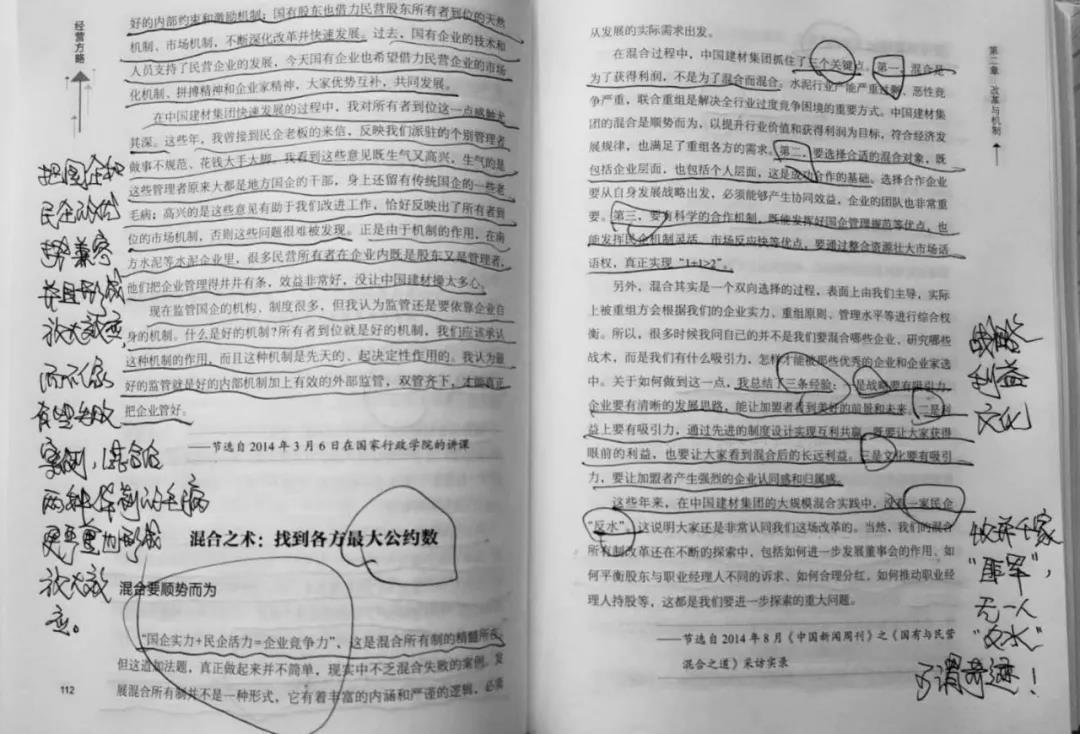 经营方略
好的内部约束和激励机制；国有股东也借力民营股东所有者到位的天然
机制、市场机制，不断深化改革并快速发展。过去，国有企业的技术和
人员支持了民营企业的发展，今天国有企业也希望借力民营企业的市场
化机制、拼搏精神和企业家精神，大家优势互补，共同发展。
在中国建材集团快速发展的过程中，我对所有者到位这一点感触尤
其深。这些年，我曾接到民企老板的来信，反映我们派驻的个别管理者
做事不规范、花钱大手大脚。我看到这些意见既生气又高兴，生气的是
这些管理者原来大都是地方国企的干部，身上还留有传统国企的一些老
毛病；高兴的是这些意见有助于我们改进工作，恰好反映出了所有者到
位的市场机制，否则这些问题很难被发现。正是由于机制的作用，在南
方水泥等水泥企业里，很多民营所有者在企业内既是股东又是管理者，
他们把企业管理得井井有条，效益非常好，没让中国建材操太多心。
现在监管国企的机构、制度很多，但我认为监管还是要依靠企业自
身的机制。什么是好的机制？所有者到位就是好的机制，我们应该承认
这种机制的作用，而且这种机制是先天的、起决定性作用的。我认为最
好的监管就是好的内部机制加上有效的外部监管，双管齐下，才能真正
把企业管好。
——节选自 2014 年 3 月 6 日在国家行政学院的讲课
混合之术：找到各方最大公约数
混合要顺势而为
“国企实力+民企活力=企业竞争力”，这是混合所有制的精髓所在。
但这道加法题，真正做起来并不简单，现实中不乏混合失败的案例。发
展混合所有制并不是一种形式，它有着丰富的内涵和严谨的逻辑，必须
112
把国企和
民企的优
势兼容
并且形成
放大效应，
而不像
有些失败
案例，混合后
两种体制的毛病
更严重的形成
放大效
应。
第二章 改革与机制
从发展的实际需求出发。
在混合过程中，中国建材集团抓住了三个关键点。第一，混合是
为了获得利润，不是为了混合而混合。水泥行业产能严重过剩、恶性竞
争严重，联合重组是解决全行业过度竞争困境的重要方式。中国建材集
团的混合是顺势而为，以提升行业价值和获得利润为目标，符合经济发
展规律，也满足了重组各方的需求。第二，要选择合适的混合对象，既
包括企业层面，也包括个人层面，这是成功合作的基础。选择合作企业
要从自身发展战略出发，必须能够产生协同效益，企业的团队也非常重
要。第三，要有科学的合作机制，既能发挥好国企管理规范等优点，也
能发挥民企机制灵活、市场反应快等优点，要通过整合资源壮大市场话
语权，真正实现“1+1>2”。
另外，混合其实是一个双向选择的过程，表面上由我们主导，实际
上被重组方会根据我们的企业实力、重组原则、管理水平等进行综合权
衡。所以，很多时候我问自己的并不是我们要混合哪些企业、研究哪些
战术，而是我们有什么吸引力，怎样才能被那些优秀的企业和企业家选
中。关于如何做到这一点，我总结了三条经验：一是战略要有吸引力，
企业要有清晰的发展思路，能让加盟者看到美好的前景和未来。二是利
益上要有吸引力，通过先进的制度设计实现互利共赢，既要让大家获得
眼前的利益，也要让大家看到混合后的长远利益。三是文化要有吸引
力，要让加盟者产生强烈的企业认同感和归属感。
这些年来，在中国建材集团的大规模混合实践中，没有一家民企
“反水”，这说明大家还是非常认同我们这场改革的。当然，我们的混合
所有制改革还在不断的探索中，包括如何进一步发展董事会的作用、如
何平衡股东与职业经理人不同的诉求、如何合理分红、如何推动职业经
理人持股等，这都是我们要进一步探索的重大问题。
——节选自 2014 年 8 月《中国新闻周刊》之《国有与民营
混合之道》采访实录
战略
利益
文化
收编千家
无一人
“反水”
可谓奇迹！